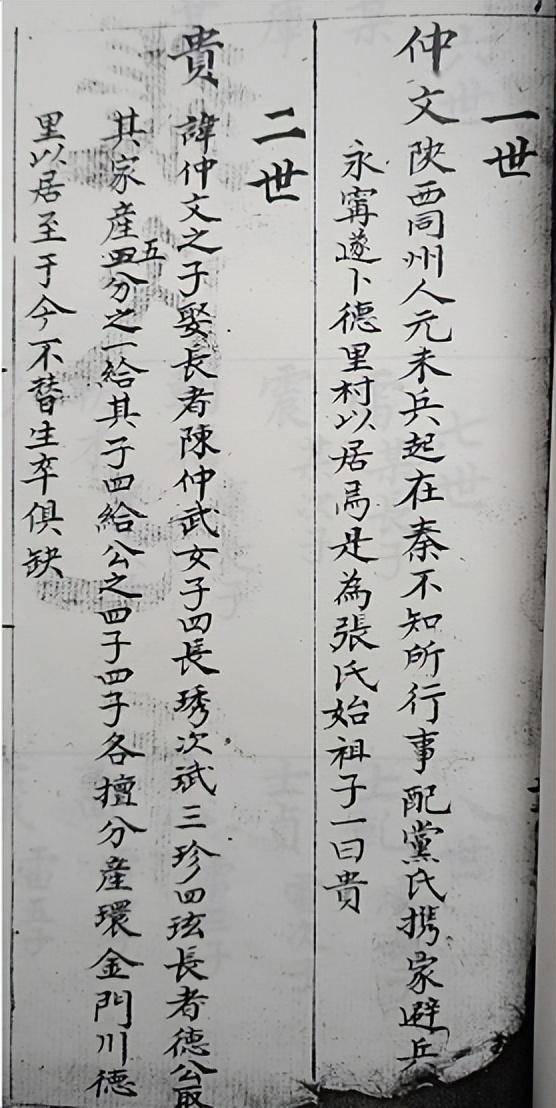 一世
仲文陜西同州人元末兵起在秦不知所行事配黨氏携家避兵
永寗遂卜德里村以居焉是為張氏始祖子一曰貴
二世
貴 諱仲文之子娶長者陳仲武女子四長琇次斌三珍四玹長者德公取
其家產五分之一給其子四給公之四子四子各擅分產環金門川德
里以居至于今不替生卒俱缺